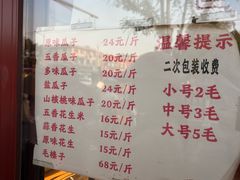 原味瓜子 24元/斤
五香瓜子 20元/斤
多味瓜子 20元/斤
盐瓜子 24元/斤
山核桃味瓜子 20元/斤
五香花生米 16元/斤
蒜香花生 15元/斤
原味花生 15元/斤
毛榛子 68元/斤
温馨提示
二次包装收费
小号2毛
中号3毛
大号5毛